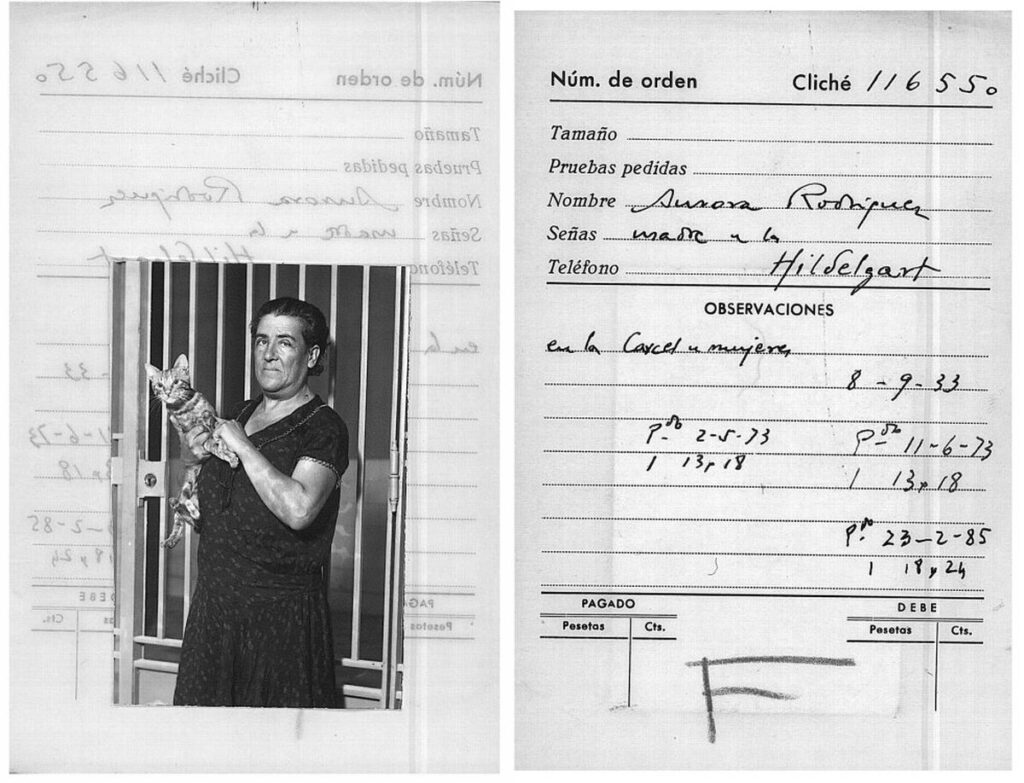 Núm. de orden Cliché 116550
Tamaño
Pruebas pedidas
Nombre Aurora Rodriguez
Señas madre de la
Teléfono Hildelgart
OBSERVACIONES
en la Carcel de mujeres
8 - 9 - 33
P. do 2-5-73 P. do 11-6-73
1 13 y 18 1 13 y 18
P. do 23-2-85
1 18 y 24
PAGADO DEBE
Pesetas Cts. Pesetas Cts.
F